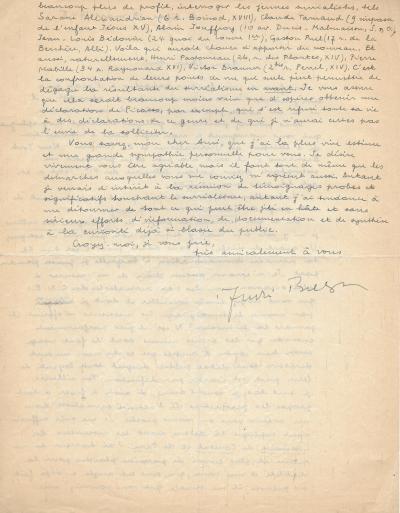 beaucoup plus de profit, interroger les jeunes surréalistes, tels
Sarane Alexandrian (6 r. Boinod, XVIII), Claude Tarnaud (9 impasse
de l'enfant Jésus XV), Alain Jouffroy (10 av. Ducis. Malmaison, S. & O.)
Jean-Louis Bédouin (21 quai du Louvre 1er), Gaston Puel (17 r. de la
Berchère, Albi). Voilà qui aurait chance d'apporter du nouveau. Et
aussi, naturellement, Henri Pastoureau (26, r. des Plantes, XIV), Pierre
Mabille (34 r. Raynouard XVI), Victor Brauner (2 bis r. Perrel, XIV). C'est
la confrontation de leurs points de vue qui seule peut permettre de
dégager la résultante du surréalisme en avant. Je vous assure
que cela serait beaucoup moins vain que d'espérer obtenir une
déclaration de Picasso, par exemple, qui s'est refusé toute sa vie
à des déclarations de ce genre et de qui je n'aurai certes pas
l'envie de la solliciter.
Vous savez, mon cher ami, que j'ai la plus vive estime
et une grande sympathie personnelle pour vous. Je désire
vivement vous être agréable mais il faut tout de même que les
démarches auxquelles vous me conviez m'agréent aussi. Autant
je verrais d'intérêt à la réunion de témoignages probes et
significatifs touchant le surréalisme, autant j'ai tendance à
me détourner de tout ce qui peut être fait en hâte et sans
sérieux efforts d'information, de documentation et de synthèse
à la curiosité déjà si blasée du public.
Croyez-moi, je vous prie,
très amicalement à vous
André Breton